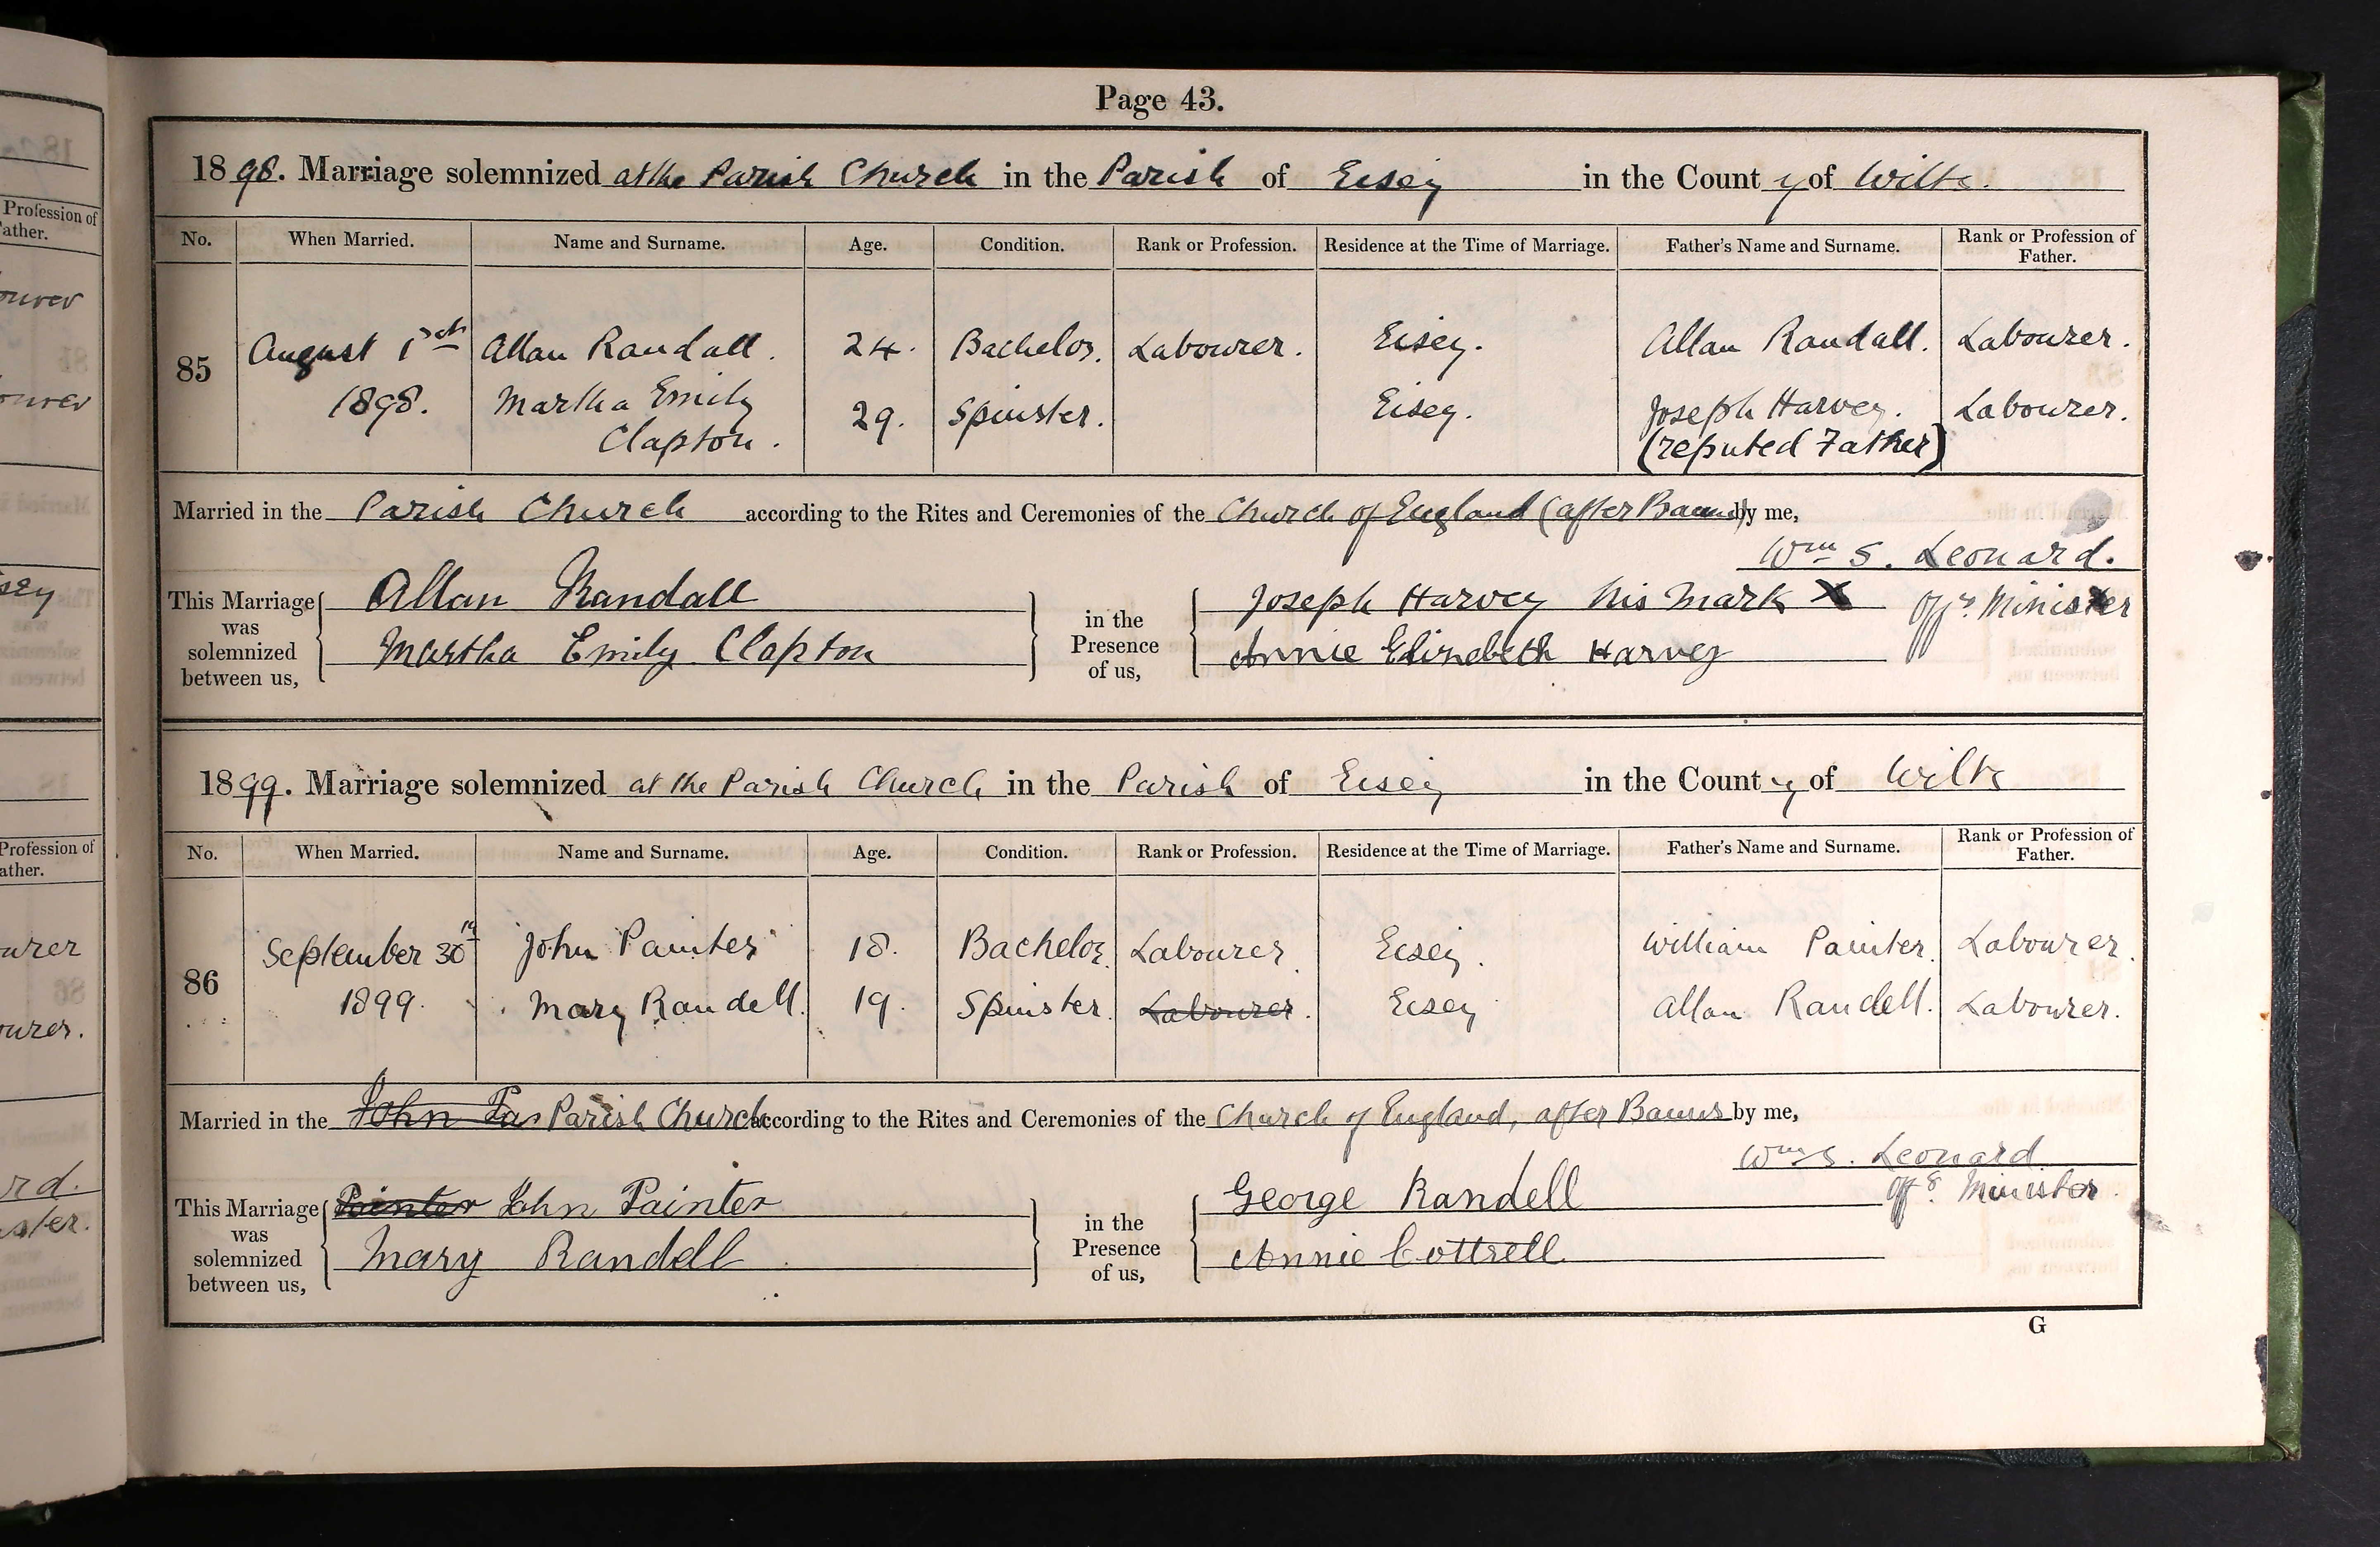 Page 43.
1898. Marriage solemnized at the Parish Church in the Parish of Eisey in the County of Wilts.
No. When Married. Name and Surname. Age. Condition. Rank or Profession. Residence at the Time of Marriage. Father's Name and Surname. Rank or Profession of Father.
85 August 1st 1898. Allan Randall. 24. Bachelor. Labourer. Eisey. Allan Randall. Labourer.
Martha Emily Clapton. 29. Spinster. Eisey. Joseph Harvey. (reputed Father) Labourer.
Married in the Parish Church according to the Rites and Ceremonies of the Church of England (after Banns) by me,
Wm S. Leonard.
Offg Minister
This Marriage was solemnized between us, Allan Randall
Martha Emily Clapton
in the Presence of us, Joseph Harvey his mark X
Annie Elizebeth Harvey
1899. Marriage solemnized at the Parish Church in the Parish of Eisey in the County of Wilts
No. When Married. Name and Surname. Age. Condition. Rank or Profession. Residence at the Time of Marriage. Father's Name and Surname. Rank or Profession of Father.
86 September 30th 1899. John Painter 18. Bachelor. Labourer. Eisey. William Painter. Labourer.
Mary Randell. 19. Spinster. Labourer. Eisey Allan Randell. Labourer.
Married in the John Pain Parish Church according to the Rites and Ceremonies of the Church of England, after Banns by me,
Wm S. Leonard
Offg Minister.
This Marriage was solemnized between us, Painter John Painter
Mary Randell
in the Presence of us, George Randell
Annie Cottrell
G
Profession of
Father.
ourer
ourer
sey
Profession of
Father.
ourer
ourer.
rd.
ster.